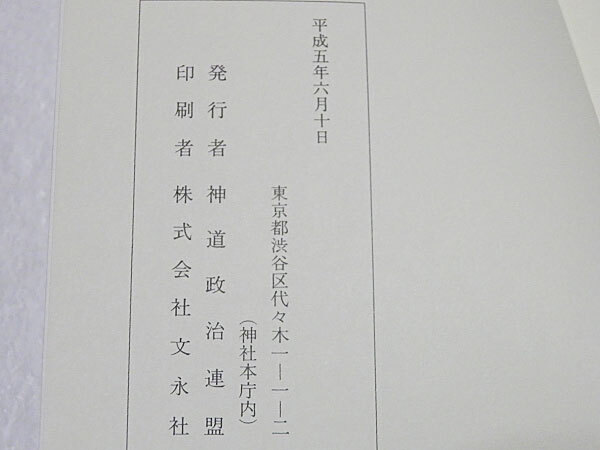 平成五年六月十日
東京都渋谷区代々木一―一―二
(神社本庁内)
発行者 神道政治連盟
印刷者 株式会社文永社